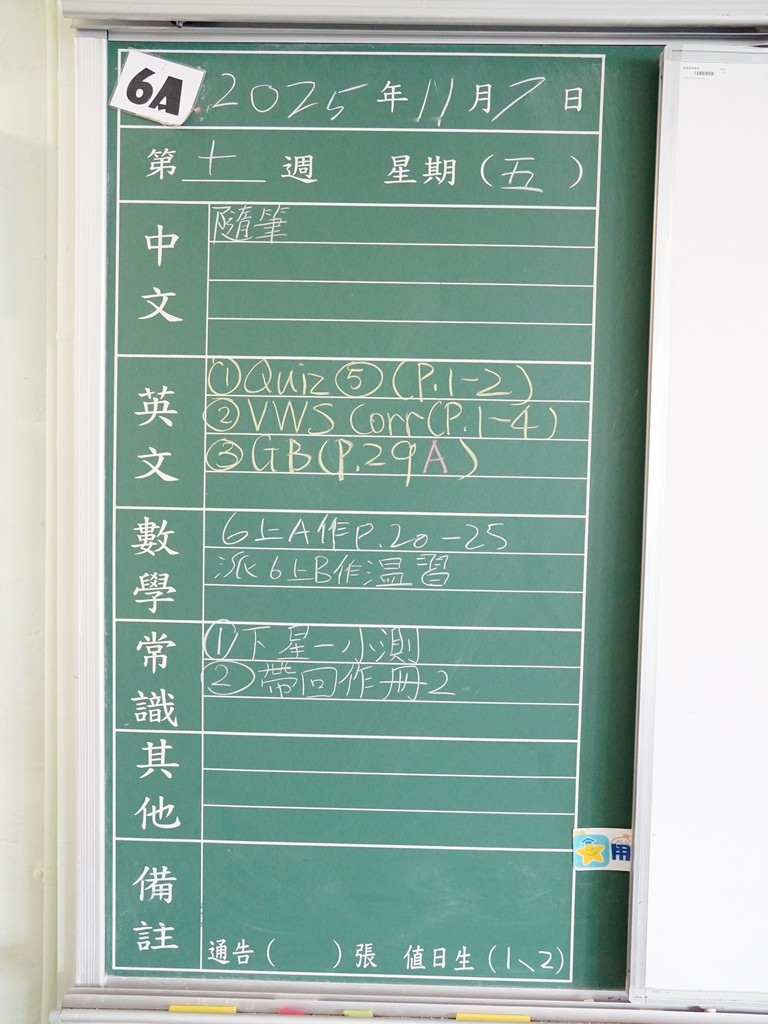 6A
2025年11月7日
第十週 星期（五）
中文
隨筆
英文
①Quiz⑤(P.1-2)
②VWS Corr(P.1-4)
③GB(P.29A)
數學
6上A作P.20-25
派6上B作温習
常識
①下星一小測
②帶回作冊2
其他
備註
通告（ ）張 值日生（1、2）
用